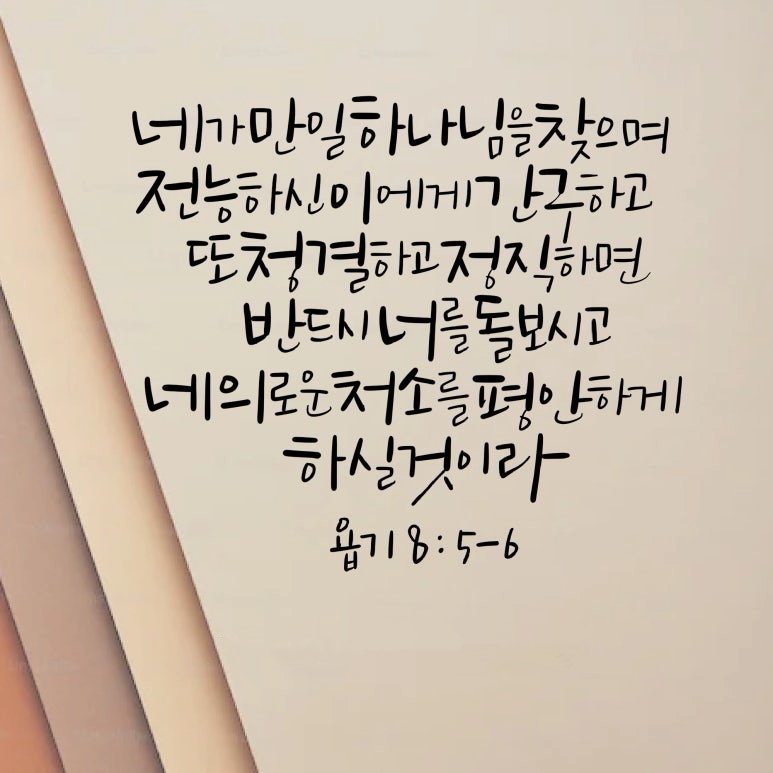 네가 만일 하나님을 찾으며
전능하신 이에게 간구하고
또 청결하고 정직하면
반드시 너를 돌보시고
네 의로운 처소를 평안하게
하실 것이라
욥기 8:5-6